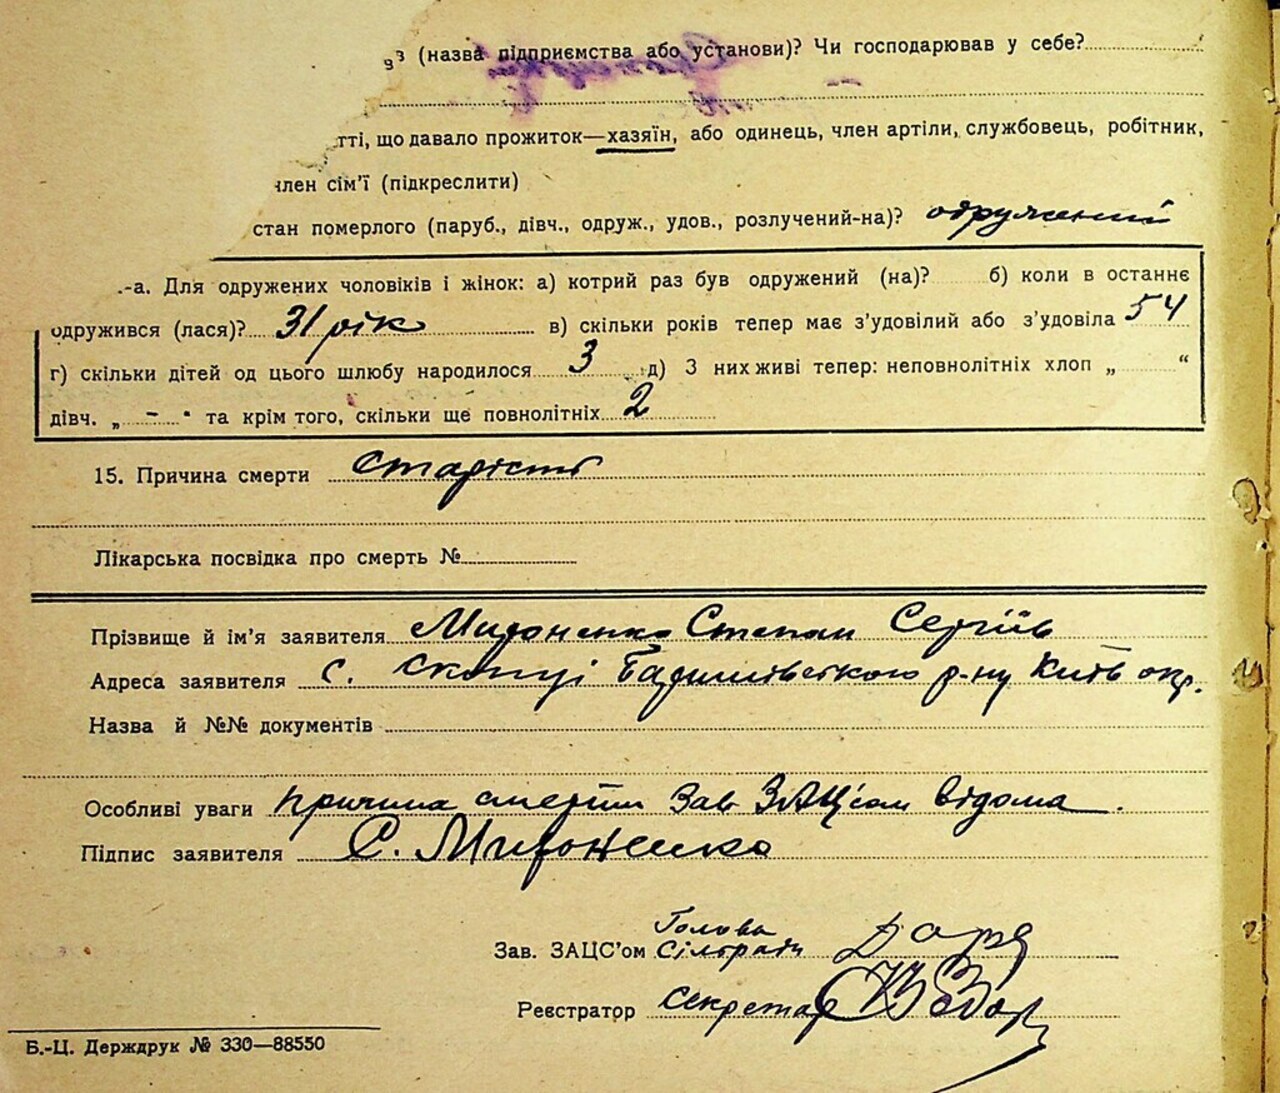 з (назва підприємства або установи)? Чи господарював у себе?
що давало прожиток—хазяїн, або одинець, член артіли, службовець, робітник,
член сім'ї (підкреслити)
стан померлого (паруб., дівч., одруж., удов., розлучений-на)? одружений
-а. Для одружених чоловіків і жінок: а) котрий раз був одружений (на)? б) коли в останнє
одружився (лася)? 31 рік в) скільки років тепер має з'удовілий або з'удовіла 54
г) скільки дітей од цього шлюбу народилося 3 д) З них живі тепер: неповнолітніх хлоп „ “
дівч. „ - “ та крім того, скільки ще повнолітніх 2
15. Причина смерти старість
Лікарська посвідка про смерть №
Прізвище й ім'я заявителя Мироненко Степан Сергіїв
Адреса заявителя с. р-ну Київ окр.
Назва й №№ документів
Особливі уваги Причина смерти Зав ЗАЦС'ом відома.
Підпис заявителя С. Мироненко
Голова
Зав. ЗАЦС'ом Сільради
Реєстратор секретар
Б.-Ц. Держдрук № 330—88550